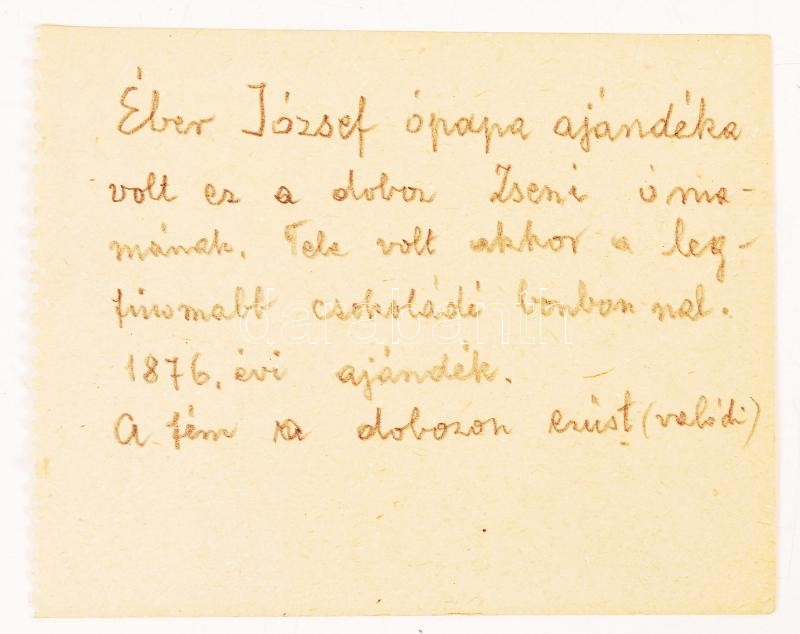 Éber József ópapa ajándéka
volt ez a doboz Zseni óma-
mának. Tele volt akkor a leg-
finomabb csokoládé bonbonnal.
darabanth
1876. évi ajándék.
A fém a dobozon ezüst (valódi)